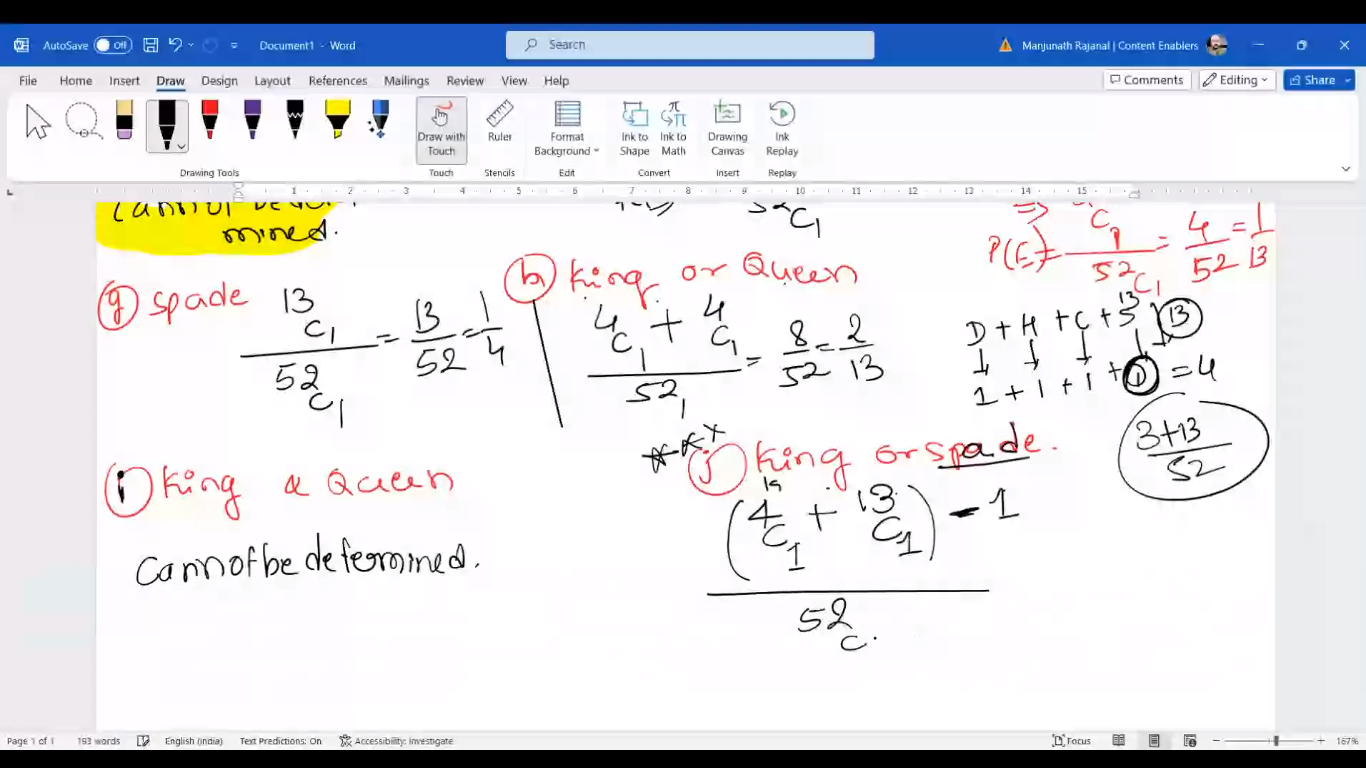 AutoSave Off Document1 - Word Search Manjunath Rajanal | Content Enablers
File Home Insert Draw Design Layout References Mailings Review View Help Comments Editing Share
Draw with Touch Ruler Format Background Ink to Shape Ink to Math Drawing Canvas Ink Replay
Drawing Tools Touch Stencils Edit Convert Insert Replay
1 2 3 4 5 6 7 8 9 10 11 12 13 14 15
mined.
52C1
P(E) = C1 / 52C1 = 4/52 = 1/13
(g) spade 13C1 / 52C1 = 13/52 = 1/4
(h) King or Queen
4C1 + 4C1 / 52 1 = 8/52 = 2/13
13
D + H + C + S 13
1 + 1 + 1 + 1 = 4
3+13 / 52
(i) King & Queen
Cannot be determined.
(j) King or spade.
(4C1 + 13C1) - 1
52C
Page 1 of 1 193 words English (India) Text Predictions: On Accessibility: Investigate Focus 167%